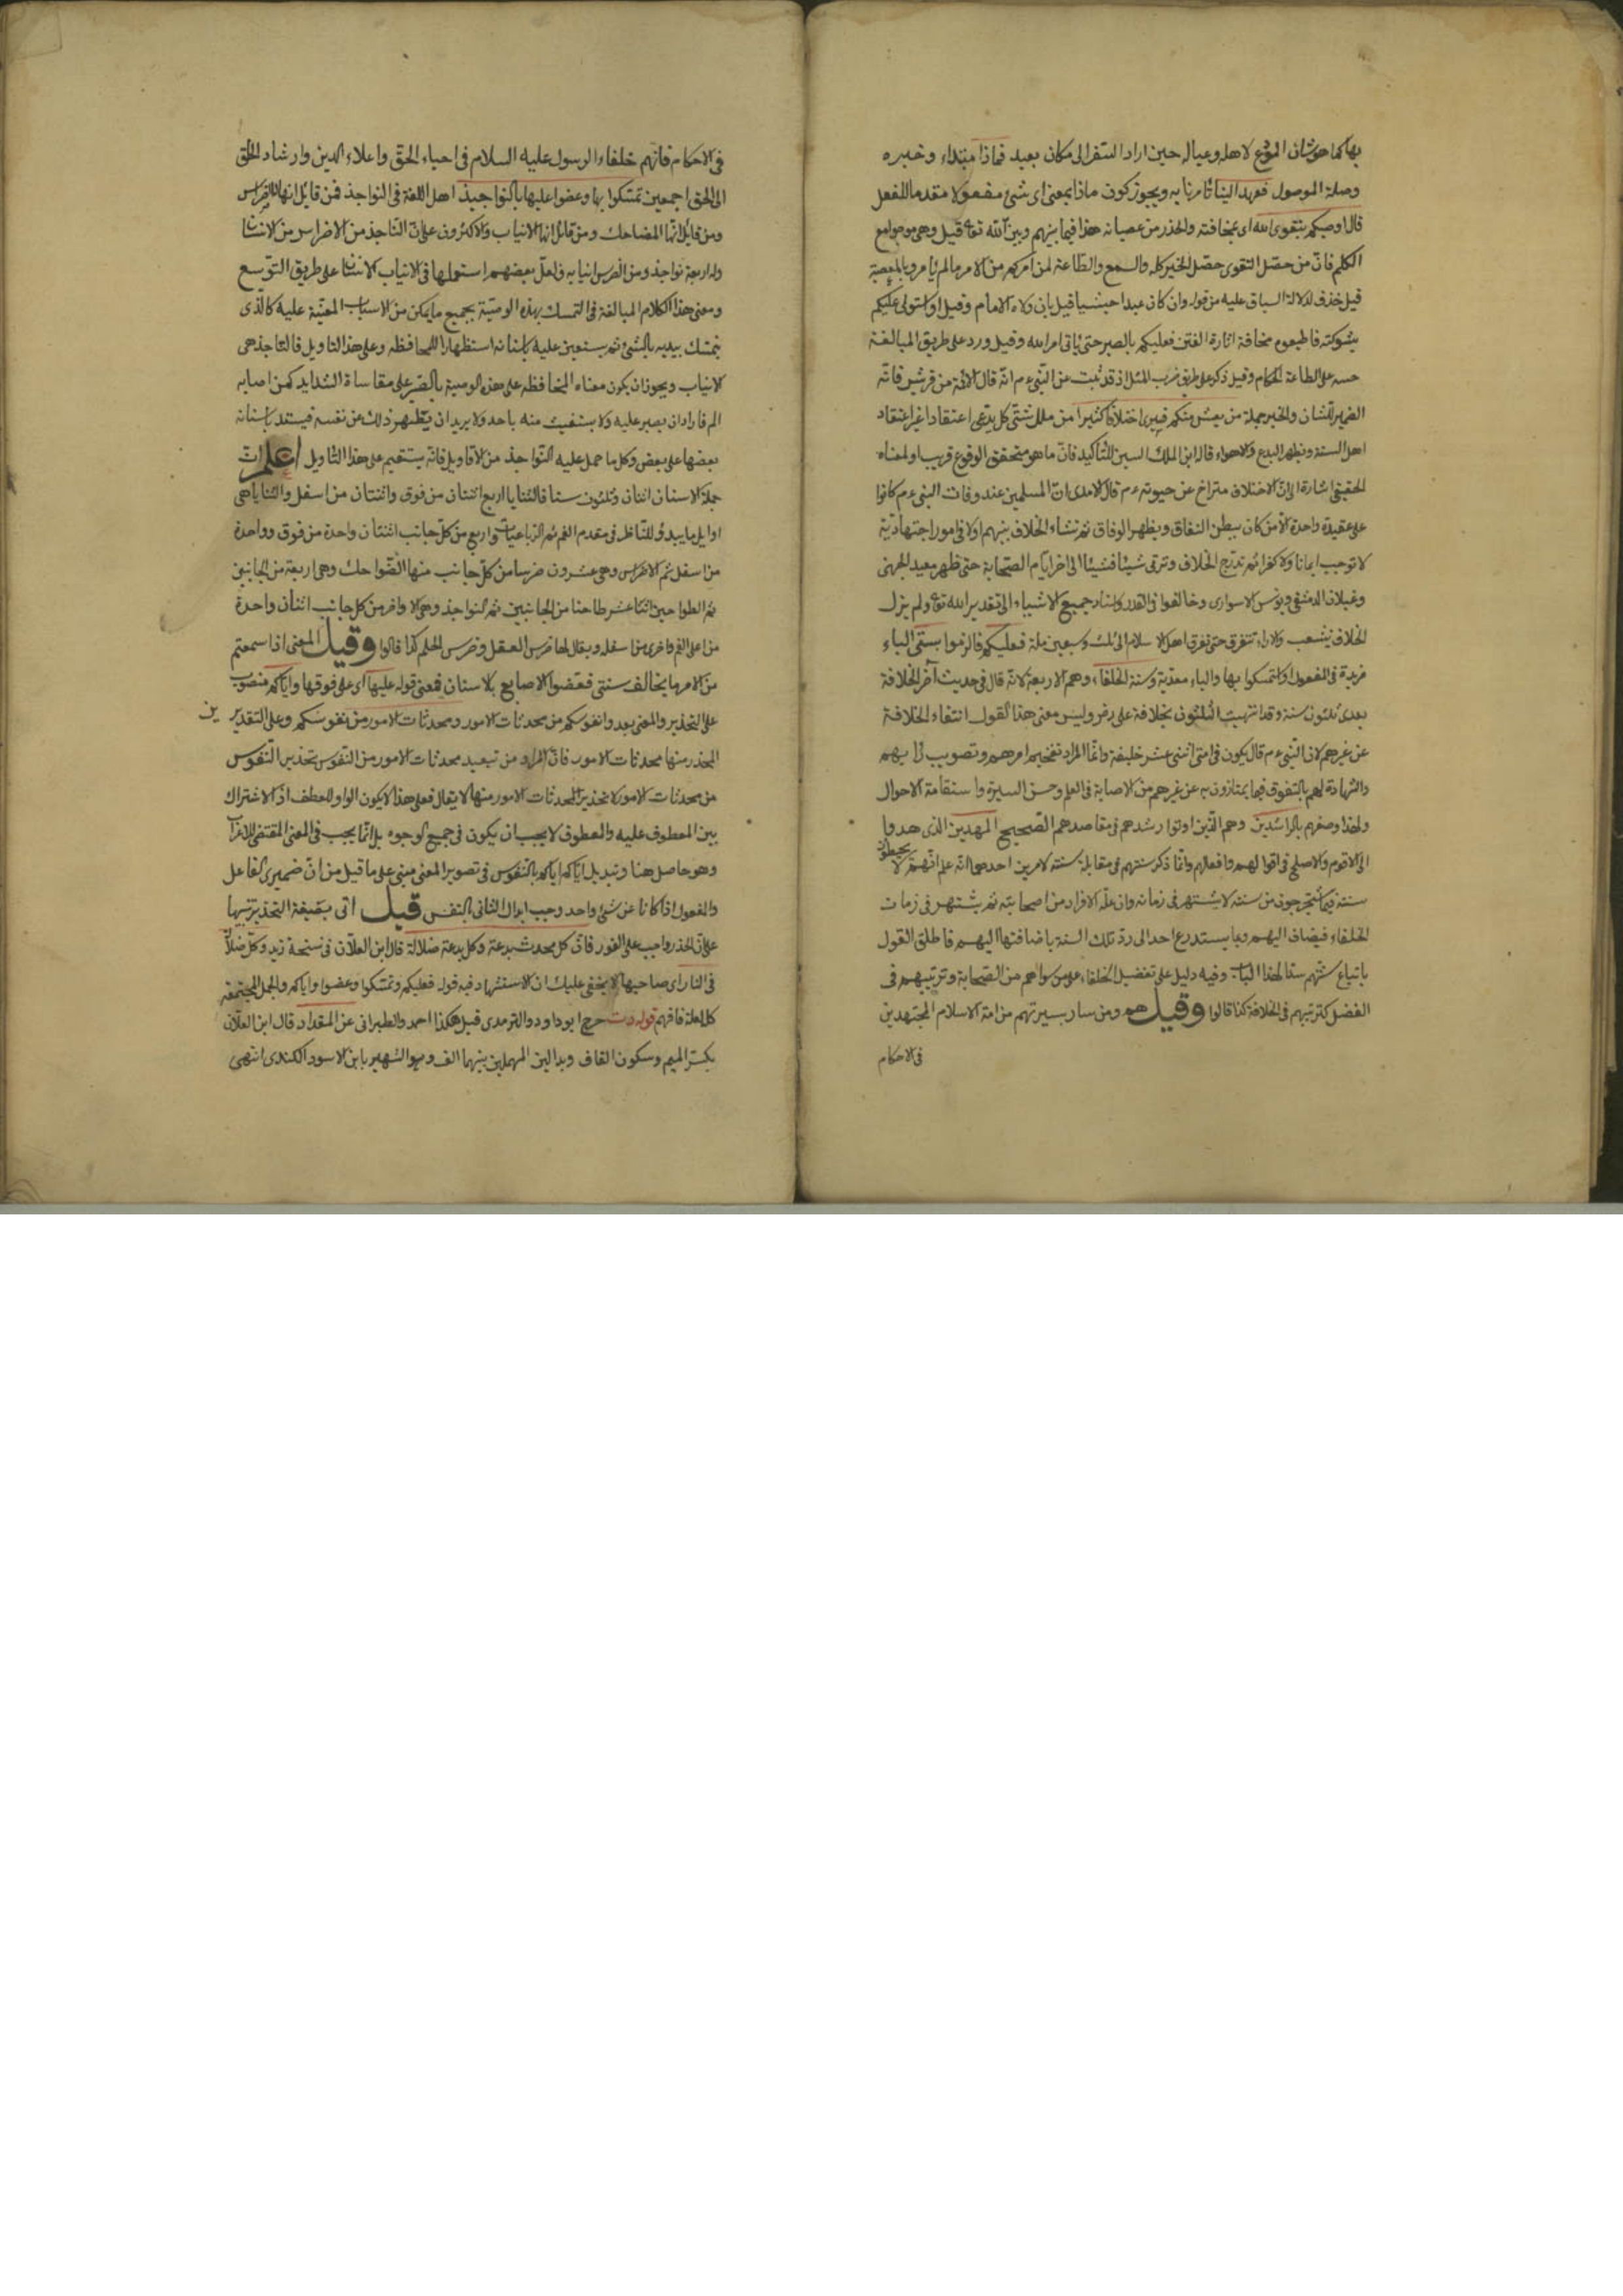 بها كما هو شان المودع لاهله وعياله حين اراد السفر الى مكان بعيد فماذا مبتداء وخبره
وصلة الموصول فعهد الينا تامرنا به ويجوز كون ماذا بمعنى اى شئ مفعولا مقدما للفعل
قال اوصيكم بتقوى الله اى بمخافته والحذر من عصيانه هذا فيما بينهم وبين الله تع قيل وهى من جوامع
الكلم فان من حصّل التقوى حصّل الخير كله والسمع والطاعة لمن امركم من الامر ما لم يامر بالمعصية
قيل حذف لدلالة السباق عليه من قوله وان كان عبدا حبشيا قيل بان ولاه الامام وقيل او استولى عليكم
بشوكته فاطيعوه مخافة اثارة الفتن فعليكم بالصبر حتى ياتى امر الله وقيل ورد على طريق المبالغة
حسه على طاعة الحكام وقيل ذكر على طريق ضرب المثل اذ قد ثبت عن النبى ءم انه قال الائمة من قريش فانه
الضمير للشان والخبر جملة من يعش منكم فسيرى اختلافا كثيرا من ملل شتى كل يدعى اعتقادا غير اعتقاد
اهل السنة ويظهر البدع والاهواء قال ابن الملك السين للتأكيد فان ما هو متحقق الوقوع قريب او لمعناه
الحقيقى اشارة الى ان الاختلاف متراخ عن حيوته ءم قال الامدى ان المسلمين عند وفات النبى ءم كانوا
على عقيدة واحدة الا من كان يبطن النفاق ويظهر الوفاق ثم نشاء الخلاف بينهم اولا فى امور اجتهادية
لا توجب ايمانا ولا كفرا ثم تدرّج الخلاف وترقى شيئا فشيئا الى اخر ايام الصحابة حتى ظهر معبد الجهنى
وغيلان الدمشقى ويونس الاسوارى وخالفوا فى القدر واسناد جميع الاشياء الى تقدير الله تع ولم يزل
الخلاف يتشعب والاراء تتفرق حتى تفرق اهل الاسلام الى ثلث وسبعين ملة فعليكم فالزموا بسنتى الباء
مزيدة فى المفعول او استمسكوا بها والباء معدّية وسنة الخلفاء وهم الاربعة لانه قال فى حديث آخر الخلافة
بعدى ثلثون سنة وقد انتهيت الثلثون بخلافة على رض وليس معنى هذا القول انتفاء الخلافة
عن غيرهم لان النبى ءم قال يكون فى امتى اثنى عشر خليفة وانما المراد تفخيم امرهم وتصويب رايهم
والشهادة لهم بالتفوق فيما يمتازون به عن غيرهم من الاصابة فى العلم وحسن السيرة واستقامة الاحوال
ولهذا وصفهم بالراشدين وهم الذين اوتوا رشدهم فى مقاصدهم الصحيح المهديين الذى هدوا
الى الاقوم والاصلح فى اقوالهم وافعالهم وانما ذكر سنتهم فى مقابلة سنته لامرين احدهما انه علم انهم لا يخطؤن
سنته فيما يستخرجون من سنته لا يشتهر فى زمانه وان علمه الافراد من اصحابه ثم يشتهر فى زمان
الخلفاء فيضاف اليهم وبما يستدرع احد الى رد تلك السنة باضافتها اليهم فاطلق القول
باتباع سنتهم سدا لهذا الباب وفيه دليل على تفضيل الخلفاء على من سواهم من الصحابة وترتيبهم فى
الفضل كترتيبهم فى الخلافة كذا قالوا وقيل هم ومن سار بسيرتهم من ائمة الاسلام المجتهدين
فى الاحكام
فى الاحكام فانهم خلفاء الرسول عليه السلام فى احياء الحق واعلاء الدين وارشاد الخلق
الى الحق اجمعين تمسكوا بها وعضوا عليها بالنواجيذ اهل اللغة فى النواجذ فمن قايل انها الاضراس
ومن قائل انها المضاحك ومن قائل انها الانياب والاكثرون على ان الناجذ من الاضراس من الانسان
وله اربعة نواجذ ومن الفرس انيابه فلعل بعضهم استعملها فى الانياب الانسان على طريق التوسع
ومعنى هذا الكلام المبالغة فى التمسك بهذه الوصية بجميع ما يمكن من الاسباب المعينة عليه كالذى
يتمسك بيديه بالشئ ثم يستعين عليه باسنانه استظهارا للمحافظة وعلى هذا التاويل فالناجذ هى
الانياب ويجوز ان يكون معناه المحافظة على هذه الوصية بالصبر على مقاساة الشدايد كمن اصابه
الم فاراد ان يصبر عليه ولا يستغيث منه باحد ولا يريد ان يظهر ذلك عن نفسه فيستد باسنانه
بعضها على بعض وكل ما حمل عليه النواجذ من الاقاويل فانه يستقيم على هذا التاويل اعلم ان
جملة الاسنان اثنتان وثلثون سنا فالثنايا اربع اثنتان من فوق واثنتان من اسفل والثنايا هى
اوايل ما يبدو للناظر فى مقدم الفم ثم الرباعيات واربع من كل جانب اثنتان واحدة من فوق وواحدة
من اسفل ثم الاضراس وهى عشرون ضرسا من كل جانب منها الضواحك وهى اربعة من الجانبين
ثم الطواحين اثنا عشر طاحنا من الجانبين ثم النواجذ وهى الاواخر من كل جانب اثنان واحدة
من اعلى الفم واخرى من اسفله ويقال لها ضرس العقل وضرس الحلم كذا قالوا وقيل المعنى اذا سمعتم
من الامر ما يخالف سنتى فعضوا الاصابع بالاسنان فمعنى قوله عليها اى على فوقها واياكم منصوب
على التحذير والمعنى بعدوا نفوسكم من محدثات الامور ومحدثات الامور من نفوسكم وعلى التقدير ين
المحذر منها محدثات الامور فان المراد من تبعيد محدثات الامور من النفوس تحذير النفوس
من محدثات الامور لا تحذير المحدثات الامور منها لا يقال فعلى هذا لا يكون الواو للعطف اذ الاشتراك
بين المعطوف عليه والمعطوف لا يجب ان يكون فى جميع الوجوه بل انما يجب فى المعنى المقتضى للاعراب
وهو حاصل هنا وتبديل اياكم اياكم بالنفوس فى تصوير المعنى مبنى على ما قيل من ان ضميرى الفاعل
والمفعول اذا كانا عن شئ واحد وجب ابدال الثانى بالنفس قيل اتى بصيغة التحذير تنبيها
على ان الحذر واجب على الفور فان كل محدث بدعة وكل بدعة ضلالة قال ابن العلان فى نسخة زيد وكل ضلالة
فى النار اى صاحبها لا يخفى عليك ان الاستشهاد فيه قوله فعليكم وتمسكوا وعضوا واياكم والجمل المجتمعة
كالعلة فافهم قوله دت خرج ابو داود والترمدى قيل هكذا احمد والطبرانى عن المقداد قال ابن العلان
بكسر الميم وسكون القاف وبدالين المهملين بينهما الف وهو الشهير بابن الاسود الكندى انتهى